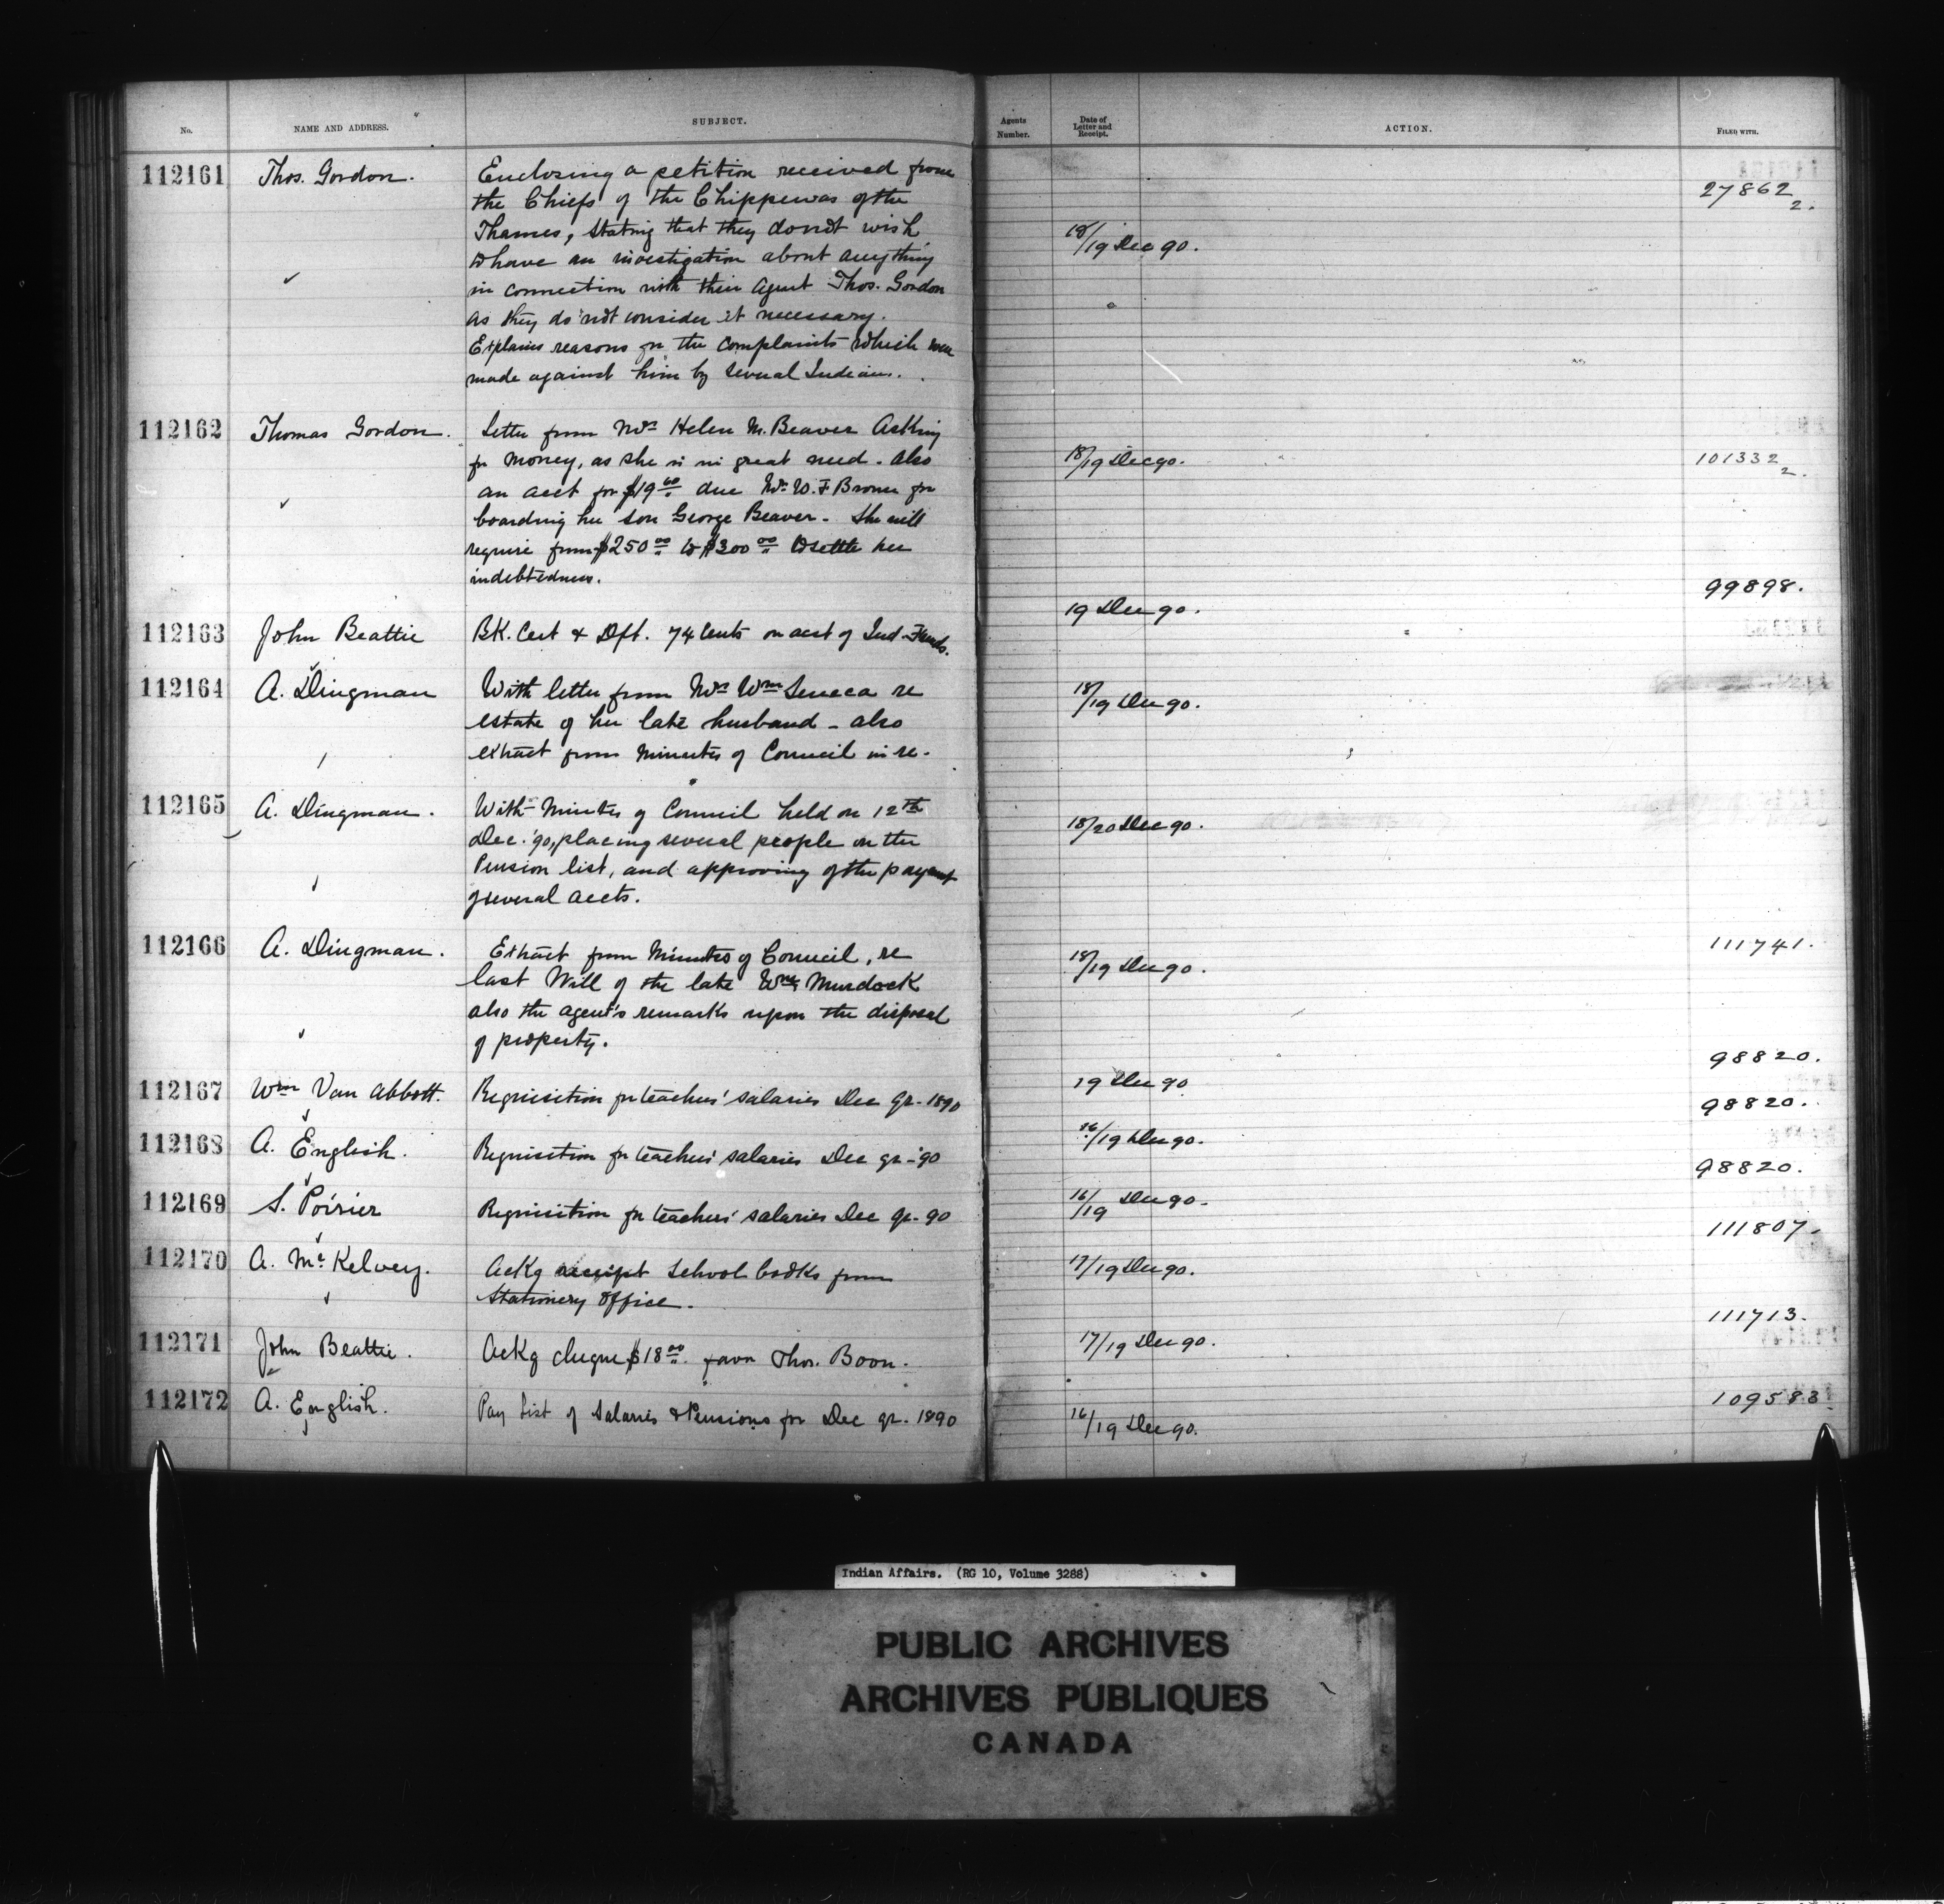 No. NAME AND ADDRESS. SUBJECT. Agents Number. Date of Letter and Receipt. ACTION. FILED WITH.
112161 Thos. Gordon. Enclosing a petition received from 27862
the Chiefs of the Chippewas of the 2.
Thames, stating that they do not wish 18/19 Dec 90.
to have an investigation about anything
in connection with their Agent Thos. Gordon
as they do not consider it necessary.
Explains reasons for the complaints which were
made against him by several Indians.
112162 Thomas Gordon. Letter from Mrs Helen M. Beaver Asking
for Money, as she is in great need - also 18/19 Dec 90. 101332 2.
an acct for $19 60 due Mr W. F Brown for
boarding her son George Beaver - She will
require from $250 00 to $300 00 to settle her
indebtedness.
99898.
19 Dec 90.
112163 John Beattie BK. Cert & Dft. 74 Cents on acct of Ind. Funds.
112164 A. Dingman With letter from Mrs Wm Seneca re 18/19 Dec 90.
estate of her late husband - also
extract from Minutes of Council in re.
112165 A. Dingman. With Minutes of Council held on 12th 18/20 Dec 90.
Dec. '90, placing several people on the
Pension list, and approving of the payment
of several accts.
112166 A. Dingman. Extract from Minutes of Council, re 18/19 Dec 90. 111741.
last Will of the late Wm Murdock
also the agent's remarks upon the disposal
of property.
98820.
112167 Wm Van Abbott. Requisition for teachers' salaries Dec qr - 1890 19 Dec 90
98820.
112168 A. English. Requisition for teachers' salaries Dec qr - '90 16/19 Dec 90.
98820.
112169 S. Poirier Requisition for teachers' salaries Dec qr - 90 16/19 Dec 90.
111807.
112170 A. McKelvey. Ackg receipt School books from 17/19 Dec 90.
Stationery Office.
111713.
112171 John Beattie. Ackg cheque $18 00 favor Thos. Boon. 17/19 Dec 90.
112172 A. English. Pay List of Salaries & Pensions for Dec qr. 1890 16/19 Dec 90. 109583.
Indian Affairs. (RG 10, Volume 3288)
PUBLIC ARCHIVES
ARCHIVES PUBLIQUES
CANADA